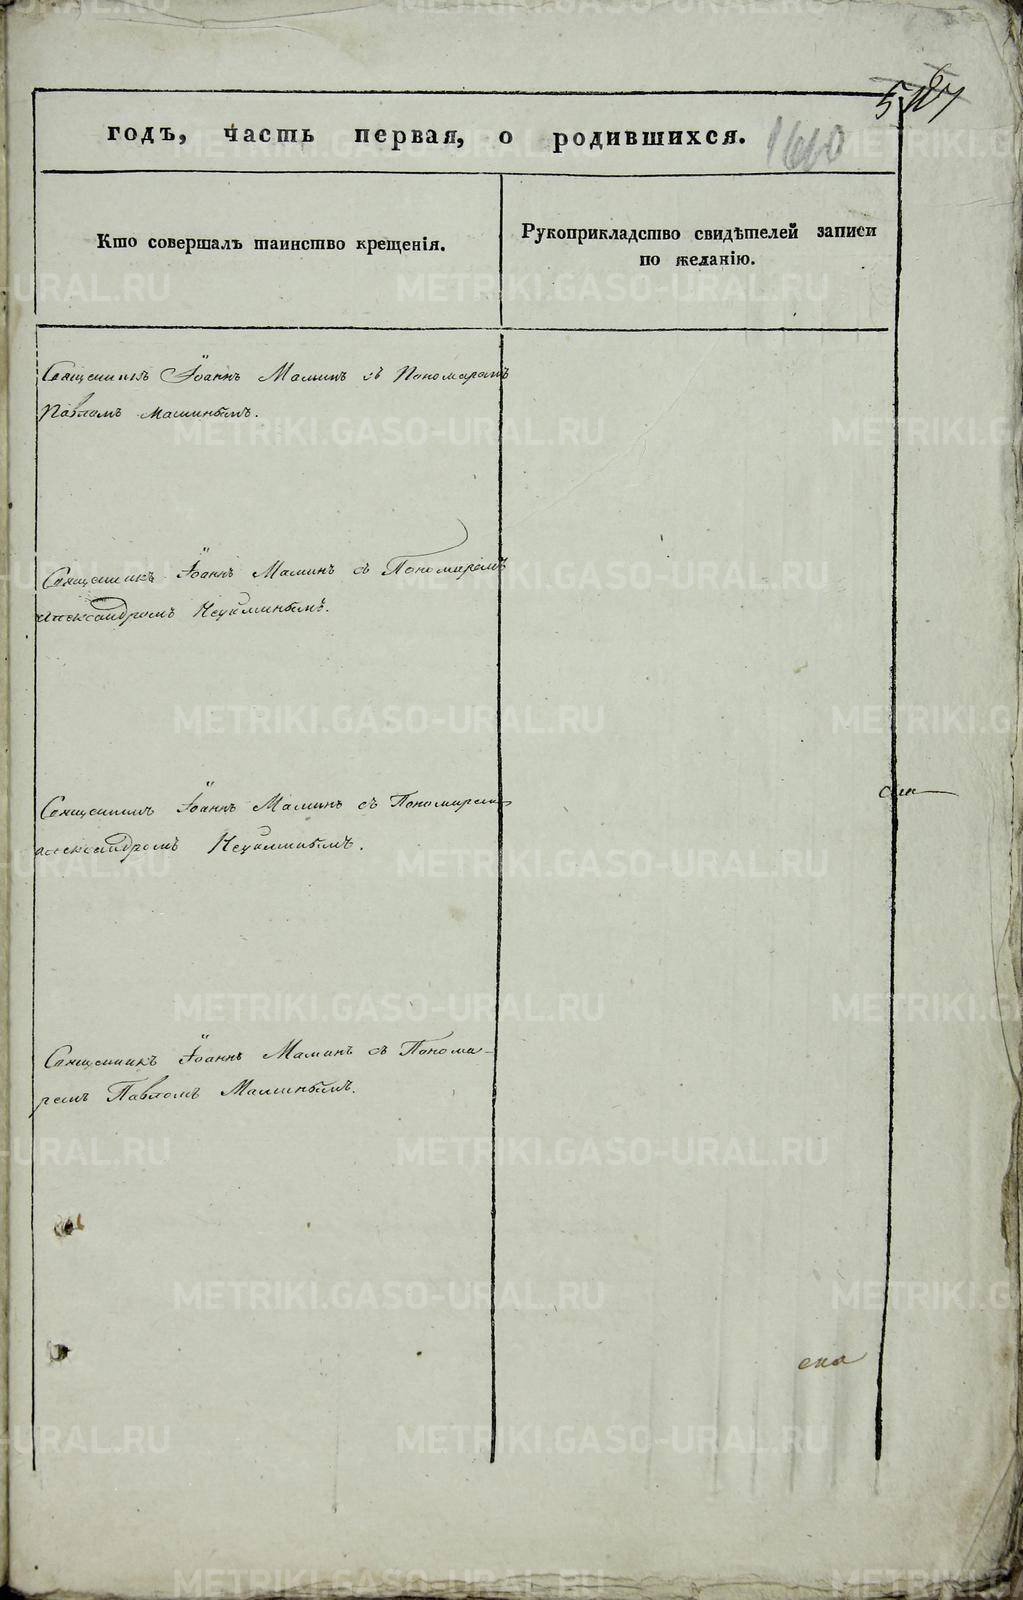 годъ, часть первая, о родившихся. 1660
Кто совершалъ таинство крещенія.
Рукоприкладство свидѣтелей записи
по желанію.
Священникъ Іоаннъ Маминъ съ Пономаремъ
Павломъ Маминымъ.
Священникъ Іоаннъ Маминъ съ Пономаремъ
Александромъ Кецкминымъ.
Священникъ Іоаннъ Маминъ съ Пономаремъ
Александромъ Кецкминымъ.
Священникъ Іоаннъ Маминъ съ Понома-
ремъ Павломъ Маминымъ.
METRIKI.GASO-URAL.RU